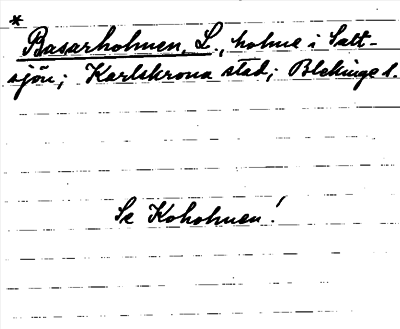 *
Basarholmen, L., holme i Salt-
sjön; Karlskrona stad; Blekinge l.
Se Koholmen!